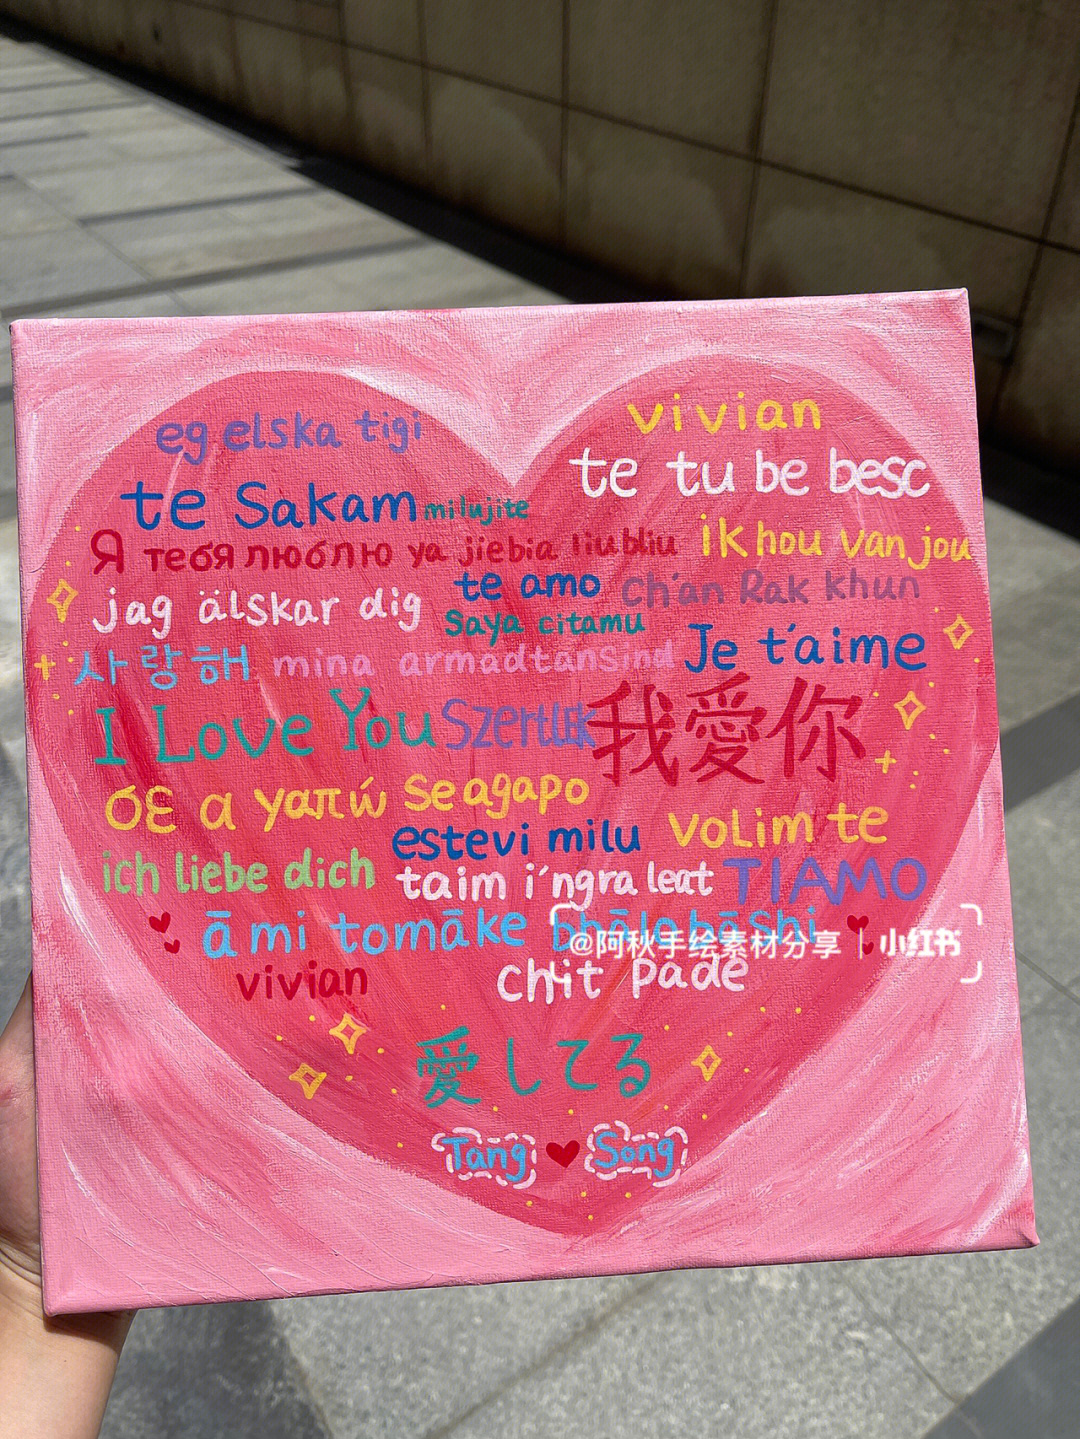 eg elska tigi
vivian
te tu be besc
te Sakam milujite
Я тебя люблю ya jiebia liubliu ik hou van jou
jag älskar dig te amo ch'an Rak khun
Saya citamu
사랑해 mina armadtansind Je t'aime
I Love You Szertlek 我愛你
σε α γαπώ se agapo
estevi milu volim te
ich liebe dich taim i'ngra leat TIAMO
āmi tomāke bhālobāshi
@阿秋手绘素材分享 | 小红书
vivian chit pade
愛してる
Tang Song